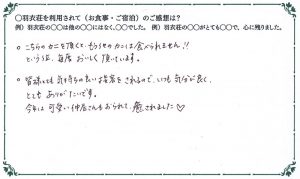 〇羽衣荘を利用されて（お食事・ご宿泊）のご感想は？
例）羽衣荘の〇〇は他の〇〇にはなく、〇〇でした。 例）羽衣荘の〇〇がとても〇〇で、心に残りました。
○ こちらのカニを頂くと、もうよそのカニは食べられません!!
という位、毎度 おいしく 頂いています。
○ 皆様とても気持ちの良い接客をされるので、いつも気分が良く、
とても ありがたいです。
今年は 可愛い仲居さんもおられて、癒されました♡